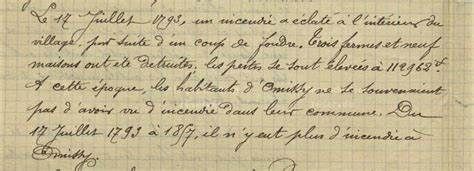 Le 17 Juillet 1793, un incendie a éclaté à l'intérieur du
village, par suite d'un coup de foudre. Trois fermes et neuf
maisons ont été détruites. les pertes se sont élevées à 112962
A cette époque, les habitants d'Omissy ne se souvenaient
pas d'avoir vu d'incendie dans leur commune. Du
17 Juillet 1793 à 1857, il n'y eut plus d'incendie à
Omissy.